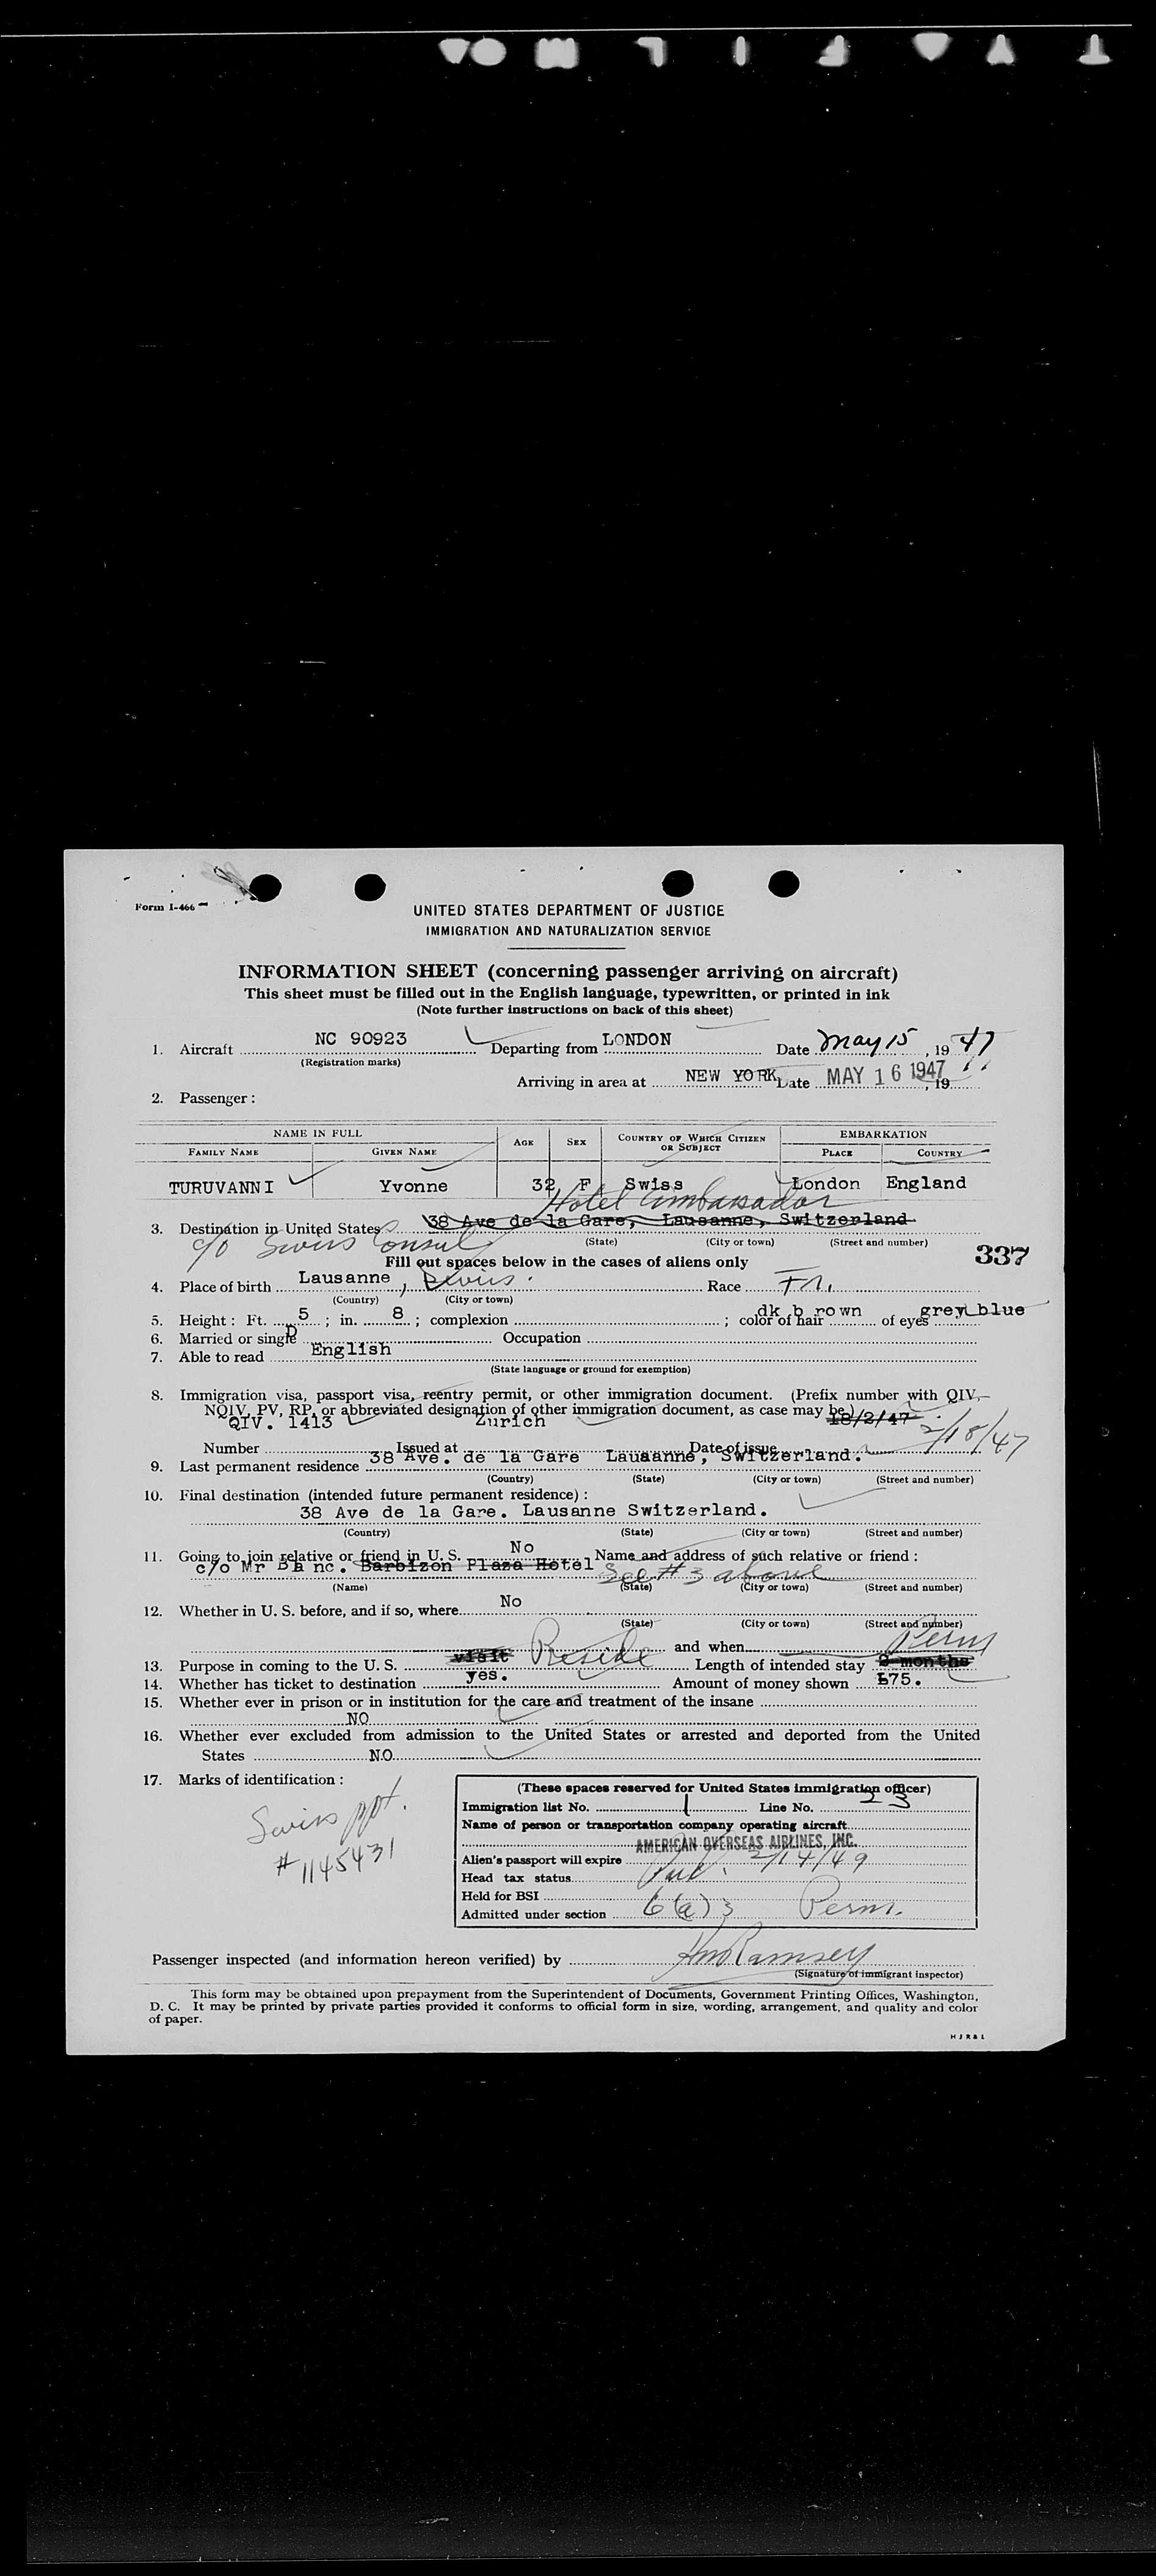 Form I-466
UNITED STATES DEPARTMENT OF JUSTICE
IMMIGRATION AND NATURALIZATION SERVICE
INFORMATION SHEET (concerning passenger arriving on aircraft)
This sheet must be filled out in the English language, typewritten, or printed in ink
(Note further instructions on back of this sheet)
1. Aircraft NC 90923 Departing from LONDON Date May 15, 1947
(Registration marks)
Arriving in area at NEW YORK Date MAY 16 1947, 19
2. Passenger:
NAME IN FULL AGE SEX COUNTRY OF WHICH CITIZEN OR SUBJECT EMBARKATION
FAMILY NAME GIVEN NAME PLACE COUNTRY
TURUVANNI Yvonne 32 F Swiss London England
Hotel Ambassador
3. Destination in United States 38 Ave de la Gare, Lausanne, Switzerland
c/o Swiss Consul (State) (City or town) (Street and number)
Fill out spaces below in the cases of aliens only
337
4. Place of birth Lausanne, Swiss. Race Fr.
(Country) (City or town)
5. Height: Ft. 5; in. 8; complexion ; color of hair dk brown of eyes grey blue
6. Married or single D Occupation
7. Able to read English
(State language or ground for exemption)
8. Immigration visa, passport visa, reentry permit, or other immigration document. (Prefix number with QIV,
NQIV, PV, RP, or abbreviated designation of other immigration document, as case may be.)
QIV. 1413 Zurich 18/2/47 2/18/47
Number Issued at Date of issue
9. Last permanent residence 38 Ave. de la Gare Lausanne, Switzerland.
(Country) (State) (City or town) (Street and number)
10. Final destination (intended future permanent residence):
38 Ave de la Gare. Lausanne Switzerland.
(Country) (State) (City or town) (Street and number)
11. Going to join relative or friend in U. S. No Name and address of such relative or friend:
c/o Mr Blanc. Barbizon Plaza Hotel See #3 above
(Name) (State) (City or town) (Street and number)
12. Whether in U. S. before, and if so, where No
(State) (City or town) (Street and number)
and when
13. Purpose in coming to the U. S. visit Reside Length of intended stay 2 months Perm
14. Whether has ticket to destination yes. Amount of money shown £75.
15. Whether ever in prison or in institution for the care and treatment of the insane
NO
16. Whether ever excluded from admission to the United States or arrested and deported from the United
States NO
17. Marks of identification:
Swiss ppt.
# 1145431
(These spaces reserved for United States immigration officer)
Immigration list No. 1 Line No. 23
Name of person or transportation company operating aircraft
AMERICAN OVERSEAS AIRLINES, INC.
Alien's passport will expire 2/14/49
Head tax status Paid.
Held for BSI
Admitted under section 6(a)3 Perm.
Passenger inspected (and information hereon verified) by Ramsey
(Signature of immigrant inspector)
This form may be obtained upon prepayment from the Superintendent of Documents, Government Printing Offices, Washington,
D. C. It may be printed by private parties provided it conforms to official form in size, wording, arrangement, and quality and color
of paper.
HJR&L